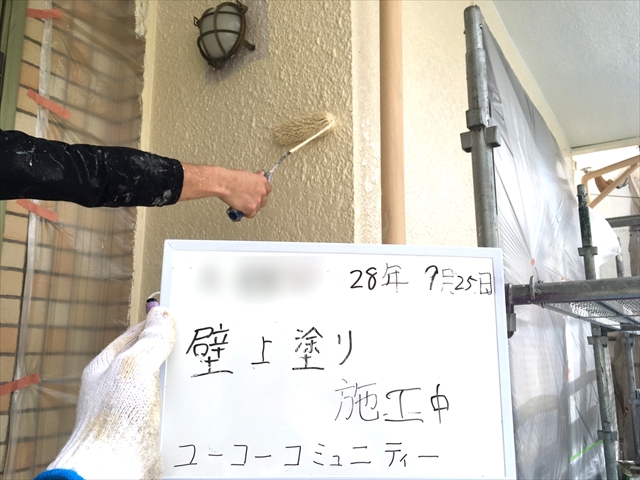 28年 9月25日
壁上塗り
施工中
ユーコーコミュニティー